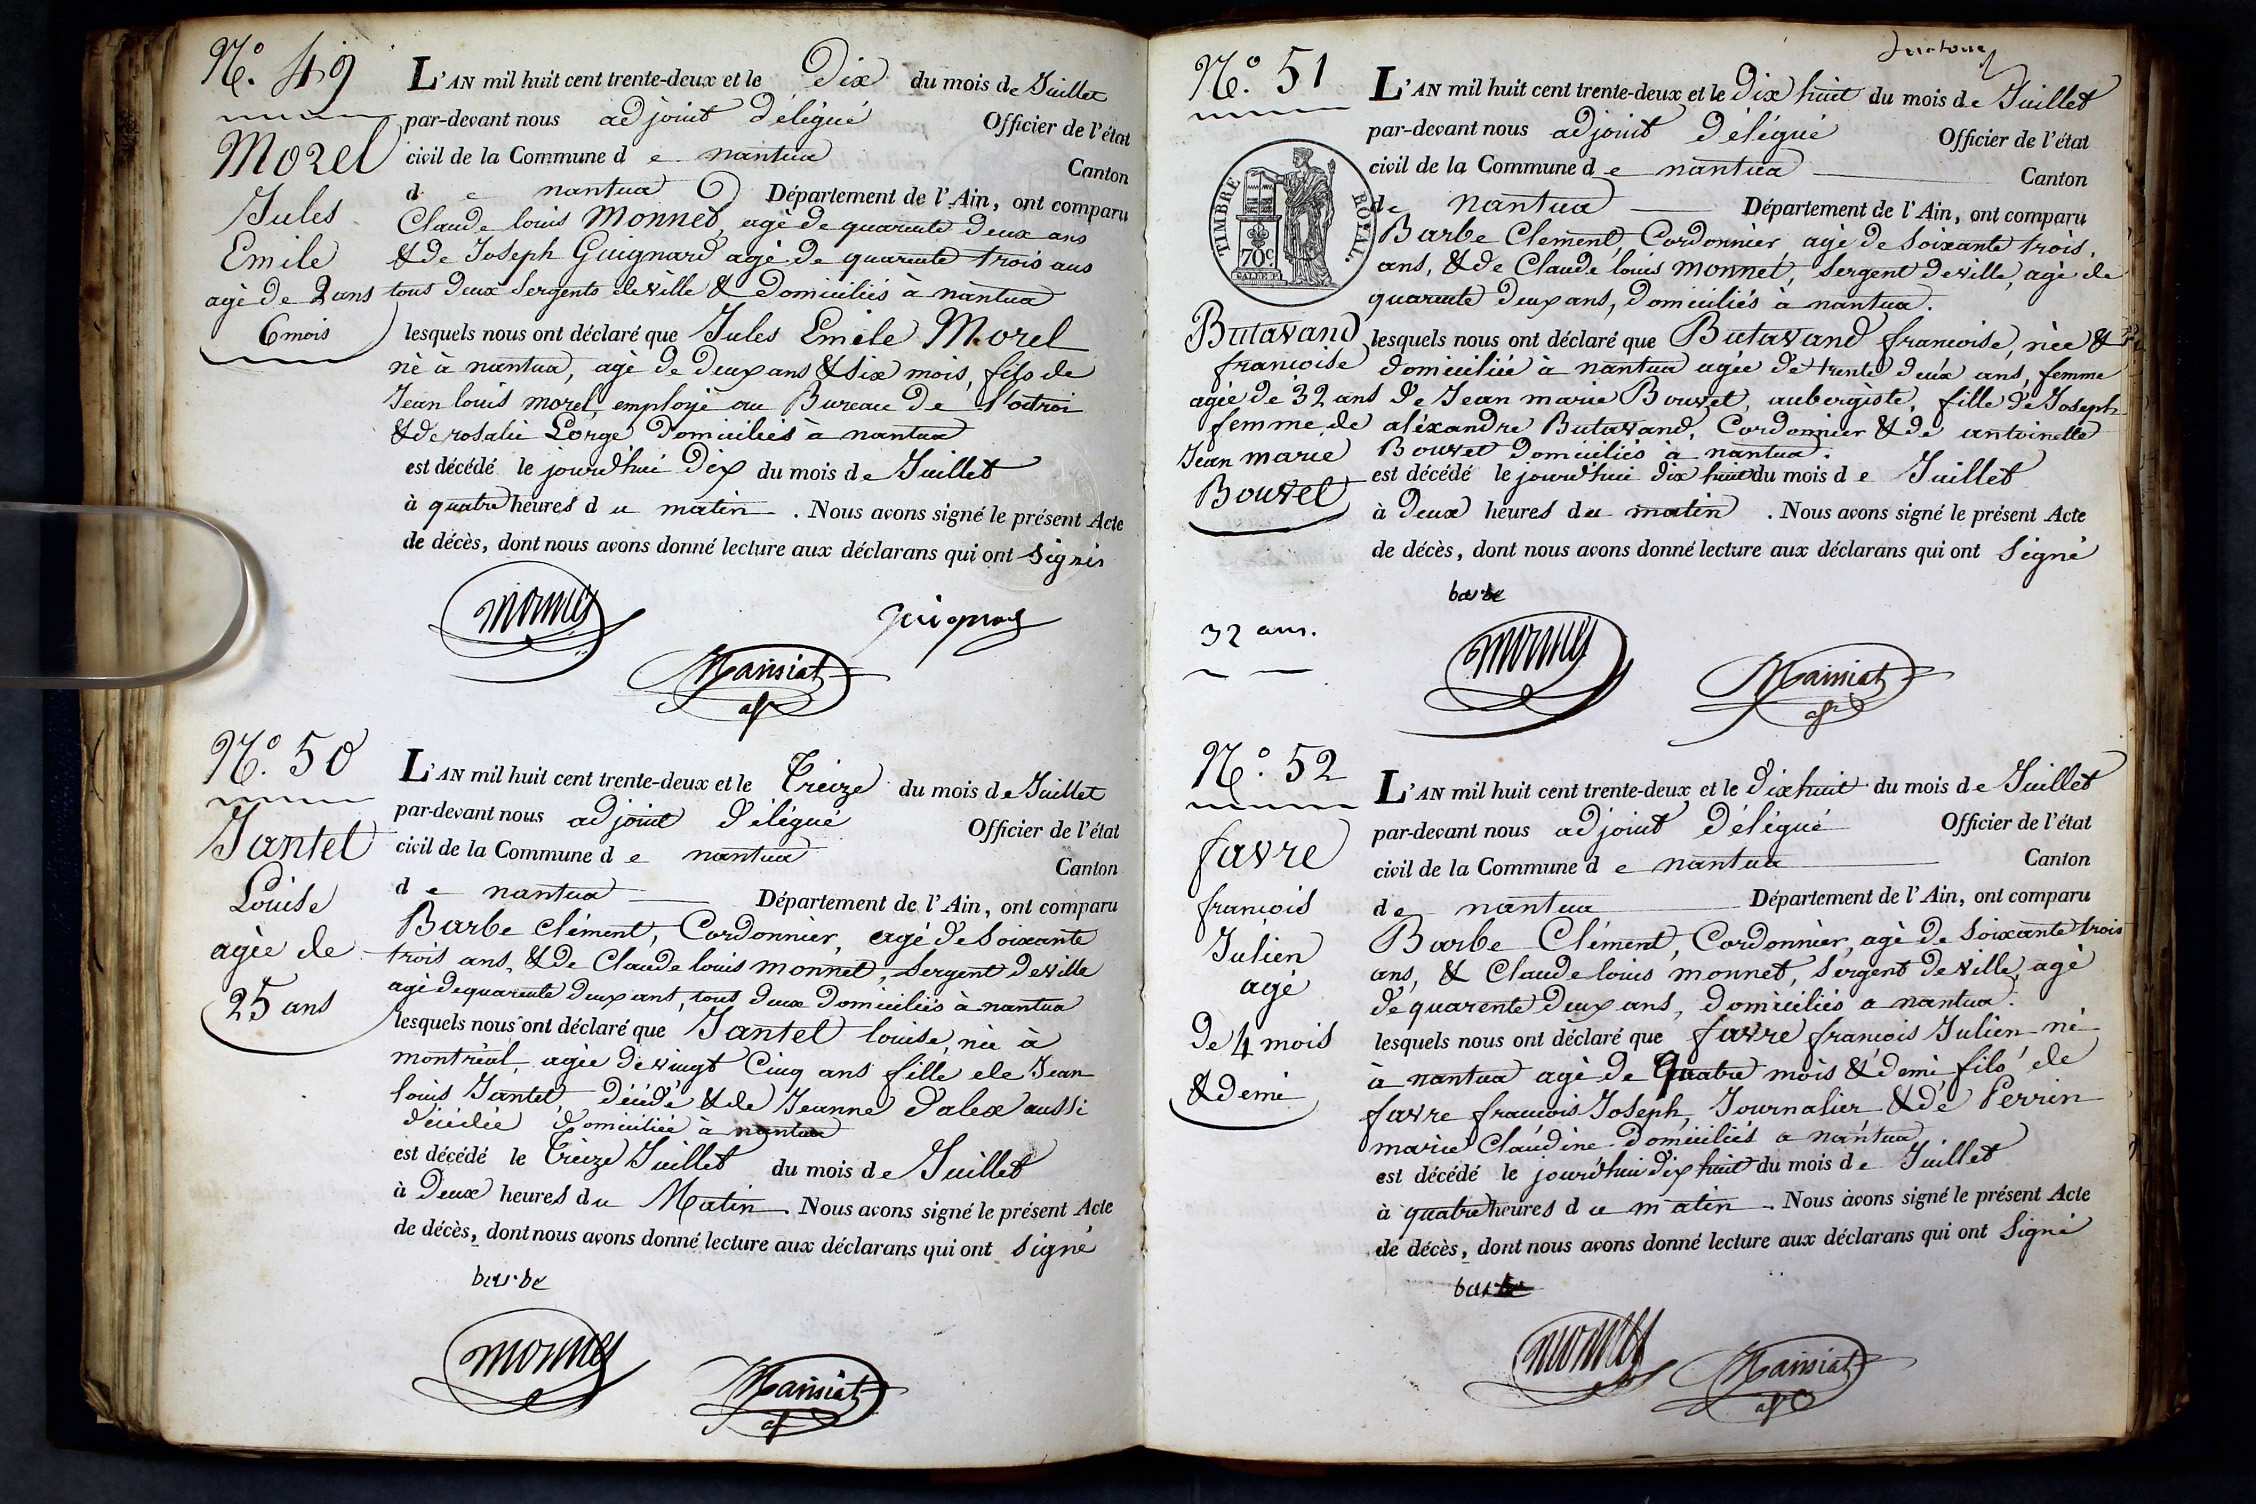 N.º 49
L'AN mil huit cent trente-deux et le Dix du mois de Juillet
par-devant nous adjoint délégué Officier de l'état
Morel civil de la Commune de nantua Canton
de nantua Département de l'Ain, ont comparu
Jules Claude louis Monnet, agé de quarante deux ans
Emile & de Joseph Guignard agé de quarante trois ans
agé de 2 ans tous deux Sergents de ville & Domiciliés à nantua
6 mois lesquels nous ont déclaré que Jules Emile Morel
né à nantua, agé de deux ans & six mois, fils de
Jean louis morel, employé au Bureau De l'octroi
& de rosalie Lorge Domiciliés à nantua
est décédé le jourdhui Dix du mois de Juillet
à quatre heures du matin. Nous avons signé le présent Acte
de décès, dont nous avons donné lecture aux déclarans qui ont signés
monnet
guignard
Mainsiat
N.º 50
L'AN mil huit cent trente-deux et le Treize du mois de Juillet
par-devant nous adjoint délégué Officier de l'état
Jantet civil de la Commune de nantua Canton
Louise de nantua Département de l'Ain, ont comparu
agée de Barbe Clément, Cordonnier, agé de Soixante
trois ans, & de Claude louis monnet, Sergent de ville
25 ans agé de quarante deux ans, tous deux Domiciliés à nantua
lesquels nous ont déclaré que Jantet louise, née à
montréal, agée de vingt Cinq ans fille de Jean
louis Jantet décédé & de Jeanne Dalex aussi
décédée domiciliée à nantua
est décédé le Treize Juillet du mois de Juillet
à Deux heures du Matin. Nous avons signé le présent Acte
de décès, dont nous avons donné lecture aux déclarans qui ont signé
barbe
monnet
Mainsiat
N.º 51
L'AN mil huit cent trente-deux et le Dix huit du mois de Juillet
par-devant nous adjoint Délégué Officier de l'état
civil de la Commune de nantua Canton
de nantua Département de l'Ain, ont comparu
TIMBRE ROYAL.
70 c.
Barbe Clement, Cordonnier, agé de Soixante trois
ans, & de Claude louis monnet, Sergent de ville, agé de
quarante Deux ans, domiciliés à nantua.
Butavand lesquels nous ont déclaré que Butavand francoise, née &
francoise domiciliée à nantua agée de trente deux ans, femme
agée de 32 ans de Jean marie Bouvet, aubergiste, fille de Joseph
femme de aléxandre Butavand, Cordonnier & de antoinette
Jean marie Bouvet Domiciliés à nantua.
Bouvet est décédé le jourd'hui Dix huit du mois de Juillet
à Deux heures du matin. Nous avons signé le présent Acte
de décès, dont nous avons donné lecture aux déclarans qui ont signé
barbe
32 ans.
monnet
Mainsiat
N.º 52
L'AN mil huit cent trente-deux et le Dix huit du mois de Juillet
par-devant nous adjoint Délégué Officier de l'état
favre civil de la Commune de nantua Canton
francois de nantua Département de l'Ain, ont comparu
Julien Barbe Clément, Cordonnier, agé de Soixante trois
agé ans, & Claude louis monnet, Sergent de ville, agé
de quarente Deux ans, domiciliés a nantua.
de 4 mois lesquels nous ont déclaré que favre francois Julien né
& demi à nantua agé de Quatre mois & demi fils de
favre francois Joseph, Journalier & de Perrin
marie Claudine Domiciliés a nantua
est décédé le jourd'hui Dix huit du mois de Juillet
à quatre heures du matin. Nous avons signé le présent Acte
de décès, dont nous avons donné lecture aux déclarans qui ont Signé
barbe
monnet
Mainsiat